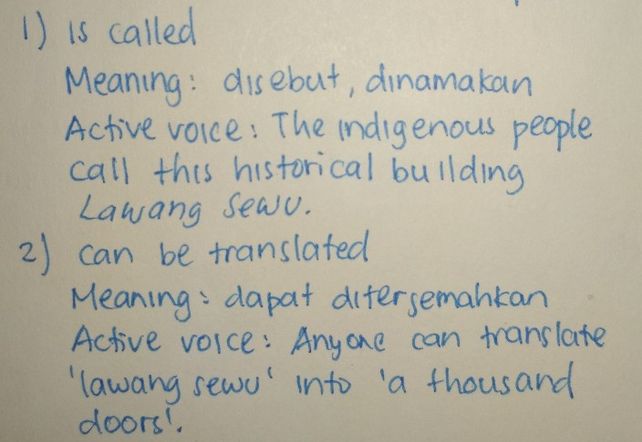 1) is called
Meaning: disebut, dinamakan
Active voice: The indigenous people
call this historical building
Lawang Sewu.
2) can be translated
Meaning: dapat diterjemahkan
Active voice: Anyone can translate
'lawang sewu' into 'a thousand
doors'.